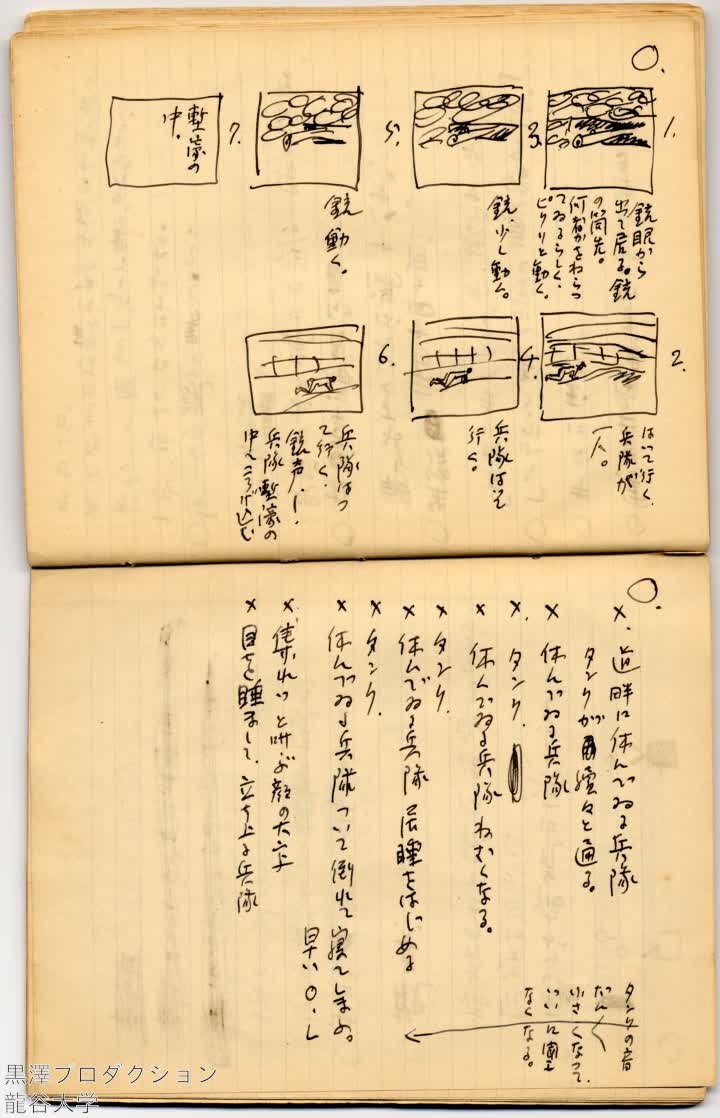 ○.
1.
銃眼から
出て居る。銃
の筒先。
何者かをねらつ
てゐるらしく、
ピクリと動く。
2.
はいて行く、
兵隊が
一人。
3.
銃、少し動く。
4.
兵隊はつて
行く。
5.
銃動く。
6.
兵隊はつ
て行く、
銃声！
兵隊塹濠の
中へころげ込む
7.
塹濠の
中。
○.
×、道畔に休んでゐる兵隊
タンクが続々と通る。
× 休んでゐる兵隊
×、タンク、
× 休んでゐる兵隊ねむくなる。
× タンク、
× 休んでゐる兵隊 居睡をはじめる
× タンク、
× 休んでゐる兵隊ついに倒れて寝てしまふ。
早い〇・L
× 集れッと叫ぶ顔の大写
× 目を醒まして、立ち上る兵隊
タンクの音
だん〱
小さくなつて、
ついに聞え
なくなる。
黒澤プロダクション
龍谷大学